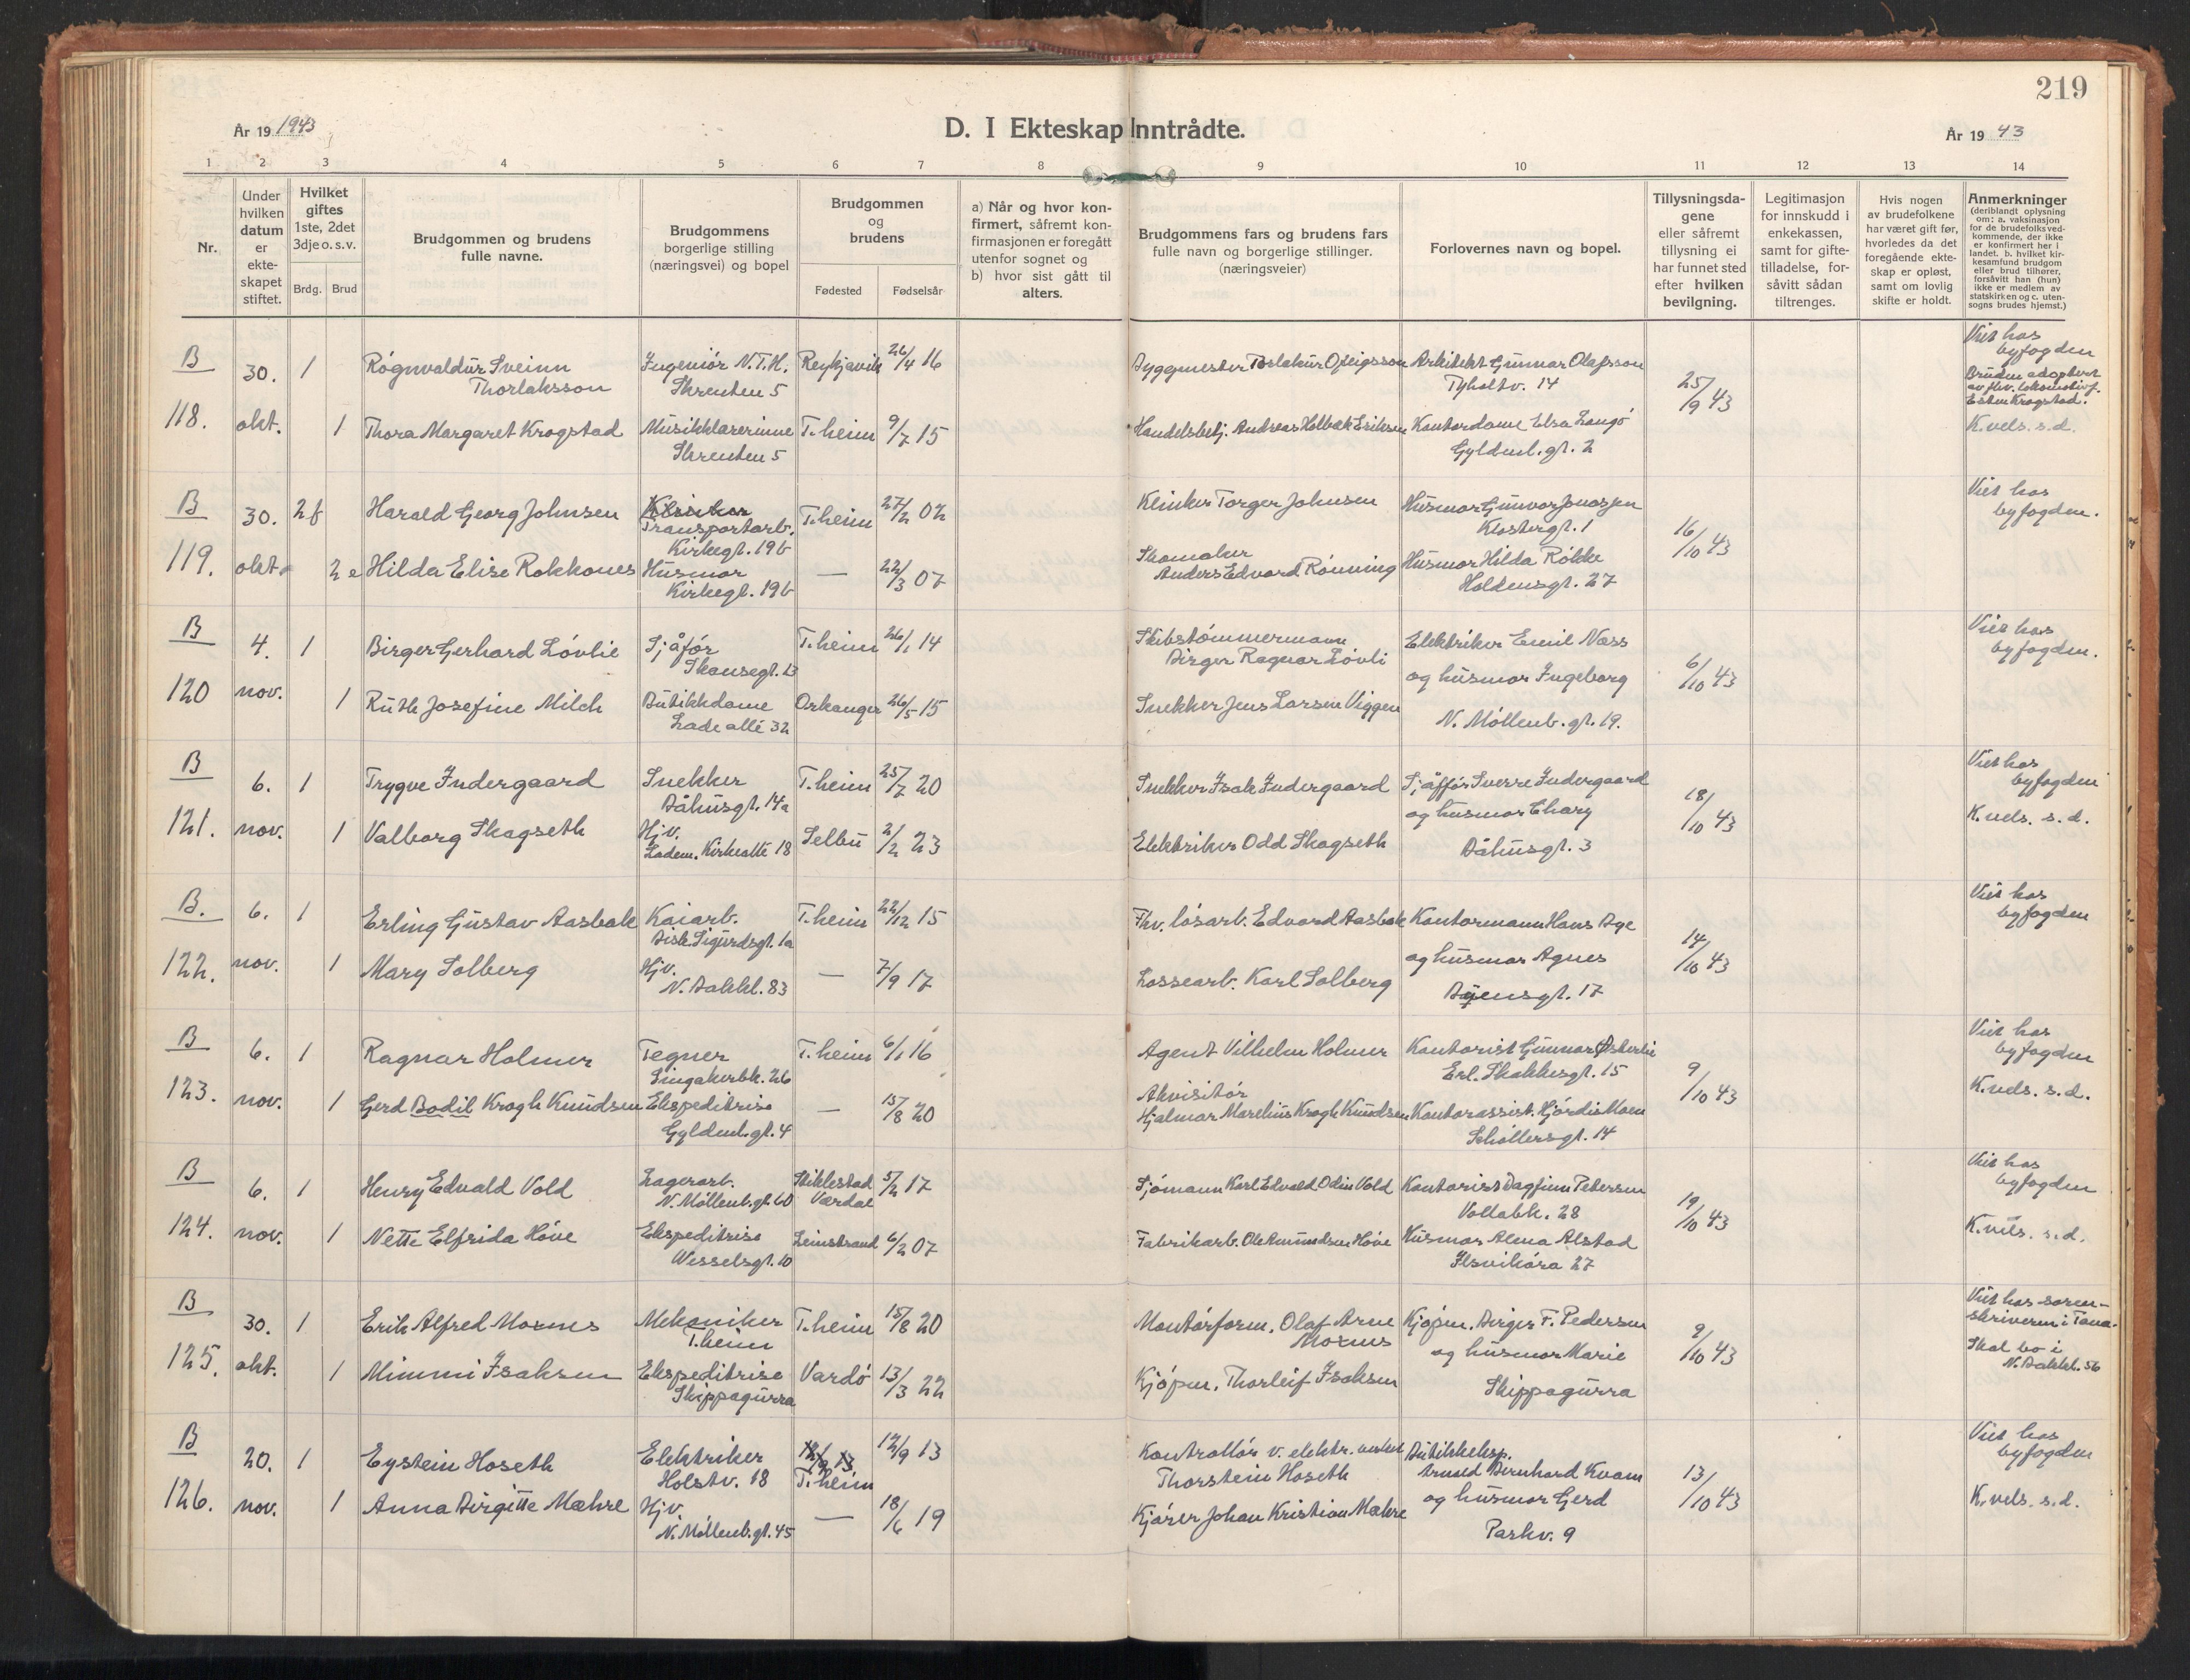 219
År 19 1943
D. I Ekteskap Inntrådte.
År 19 43
1 2 3 4 5 6 7 8 9 10 11 12 13 14
Nr.
Under hvilken datum er ekte- skapet stiftet.
Hvilket giftes 1ste, 2det 3dje o. s. v.
Brdg. Brud
Brudgommen og brudens fulle navne.
Brudgommens borgerlige stilling (næringsvei) og bopel
Brudgommen og brudens
Fødested Fødselsår
a) Når og hvor kon- firmert, såfremt kon- firmasjonen er foregått utenfor sognet og b) hvor sist gått til alters.
Brudgommens fars og brudens fars fulle navn og borgerlige stillinger. (næringsveier)
Forlovernes navn og bopel.
Tillysningsda- gene eller såfremt tillysning ei har funnet sted efter hvilken bevilgning.
Legitimasjon for innskudd i enkekassen, samt for gifte- tilladelse, for- såvitt sådan tiltrenges.
Hvis nogen av brudefolkene har været gift før, hvorledes da det foregående ekte- skap er opløst, samt om lovlig skifte er holdt.
Anmerkninger (deriblandt oplysning om: a. vaksinasjon for de brudefolksved- kommende, der ikke er konfirmert her i landet. b. hvilket kir- kesamfund brudgom eller brud tilhører, forsåvitt han (hun) ikke er medlem av statskirken og c. uten- sogns brudes hjemst.)
B 30. 1 Rögnvaldur Sveinn Thorlaksson
Ingeniör N.T.H. Skrenten 5
Reykjavik 26/4 16
Byggmester Torlakur Ofeigsson
Arkitekt Gunnar Olafsson Tyholtv. 14
25/9 43
Viet hos byfogden
Bruden adoptert av fhv. lokomotivf. Esten Krogstad.
118. okt. 1 Thora Margaret Krogstad
Musikklærerinne Skrenten 5
T.heim 9/7 15
Handelsbetj. Andreas Holbæk Eriksen
Kontordame Elsa Langö Gyldenl.gt. 2
K.vels. s.d.
B 30. 2f Harald Georg Johnsen
Transportarb. Kirkegt. 19b
T.heim 27/2 02
Klinker Torger Johnsen
Husmor Gunvor Jonassen Klostergt. 1
16/10 43
Viet hos byfogden.
119. okt. 2e Hilda Elise Rokkones
Husmor Kirkegt. 19b
— 22/3 07
Skomaker Anders Edvard Rönning
Husmor Hilda Rökke Holdensgt. 27
B 4. 1 Birger Gerhard Lövlie
Sjåför Skansegt. 13
T.heim 26/1 14
Skibstömmermann Birger Ragnar Lövli
Elektriker Emil Næss
6/10 43
Viet hos byfogden.
120 nov. 1 Ruth Josefine Milch
Butikkdame Lade allé 32
Orkanger 26/5 15
Snekker Jens Larsen Viggen
og husmor Ingeborg N. Möllenb.gt. 19.
B 6. 1 Trygve Indergaard
Snekker Båhusgt. 14a
T.heim 25/7 20
Snekker Isak Indergaard
Sjåffør Sverre Indergaard
18/10 43
Viet hos byfogden
121. nov. 1 Valborg Skagseth
Hjv. Ladem. Kirkeallé 18
Selbu 2/2 23
Elektriker Odd Skagseth
og husmor Chary Båhusgt. 3
K.vels. s.d.
B. 6. 1 Erling Gustav Aasbak
Kaiarb. Bisk.Sigurdsgt. 1a
T.heim 22/12 15
Fhv. lösarb. Edvard Aasbak
Kontormann Hans Bye
14/10 43
Viet hos byfogden
122. nov. 1 Mary Solberg
Hjv. N. Bakkl. 83
— 7/9 17
Lossearb. Karl Solberg
og husmor Agnes Bÿensgt. 17
B 6. 1 Ragnar Holmer
Tegner Singsakerbk. 26
T.heim 6/1 16
Agent Vilhelm Holmer
Kontorist Gunnar Østerlie Erl. Skakkesgt. 15
9/10 43
Viet hos byfogden
123. nov. 1 Gerd Bodil Krogh Knudsen
Ekspeditrise Gyldenl.gt. 4
— 15/8 20
Akvisitör Hjalmar Marelius Krogh Knudsen
Kontorassist. Hjördis Moen Schöllersgt. 14
K.vels. s.d.
B 6. 1 Henry Edvald Vold
Lagerarb. N. Möllenb.gt. 60
Stiklestad Værdal 5/2 17
Sjömann Karl Edvald Odin Vold
Kontorist Dagfinn Petersen Vollabk. 28
19/10 43
Viet hos byfogden
124. nov. 1 Nette Elfrida Höve
Ekspeditrise Wesselsgt. 10
Leinstrand 6/2 07
Fabrikarb. Ole Amundsen Höve
Husmor Alma Alstad Ilsviköra 27
K.vels. s.d.
B 30. 1 Erik Alfred Moxnes
Mekaniker T.heim
T.heim 15/8 20
Montörform. Olaf Arne Moxnes
Kjöpm. Birger F. Pedersen
9/10 43
Viet hos soren- skriveren i Tana.
125. okt. 1 Mimmi Isaksen
Ekspeditrise Skippagurra
Vardö 13/3 22
Kjöpm. Thorleif Isaksen
og husmor Marie Skippagurra
Skal bo i N. Bakkl. 56
B 20. 1 Eystein Hoseth
Elektriker Holstv. 18
T.heim 12/9 13
Kontrollör v. elektr. verket Thorstein Hoseth
Butikkeksp. Arnold Bernhard Kvam
13/10 43
Viet hos byfogden
126. nov. 1 Anna Birgitte Mæhre
Hjv. N. Möllenb.gt. 45
— 18/6 19
Kjörer Johan Kristian Mæhre
og husmor Gerd Parkv. 9
K.vels. s.d.